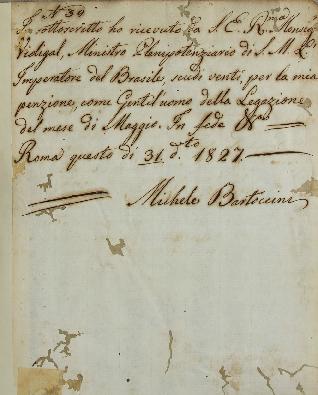 N. 39
Io sottoscritto ho ricevuto da S. E. R.ma Monsig.
Vidigal, Ministro Plenipotenziario di S. M. L'
Imperatore del Brasile, scudi venti, per la mia
penzione, come Gentil'uomo della Legazione
del mese di Maggio. In fede &ca
Roma questo di 31 d.tto 1827.
Michele Bartoccini